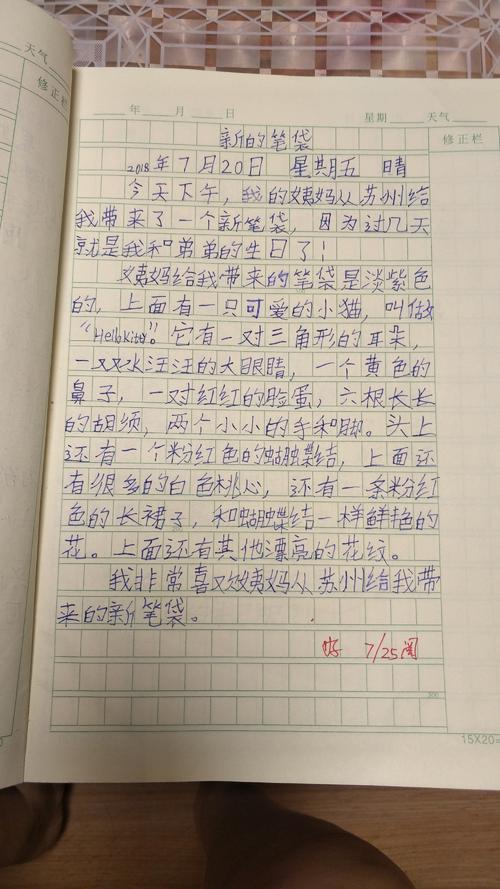 天气
修正栏
年 月 日 星期 天气
修正栏
新的笔袋
2018年7月20日 星期五 晴
今天下午，我的姨妈从苏州给
我带来了一个新笔袋，因为过几天
就是我和弟弟的生日了！
姨妈给我带来的笔袋是淡紫色
的，上面有一只可爱的小猫，叫做
“Hello Kitty”。它有一对三角形的耳朵，
一双水汪汪的大眼睛，一个黄色的
鼻子，一对红红的脸蛋，六根长长
的胡须，两个小小的手和脚。头上
还有一个粉红色的蝴蝶结，上面还
有很多的白色桃心，还有一条粉红
色的长裙子，和蝴蝶结一样鲜艳的
花。上面还有其他漂亮的花纹。
我非常喜欢姨妈从苏州给我带
来的新笔袋。
好 7/25阅
300
15X20=